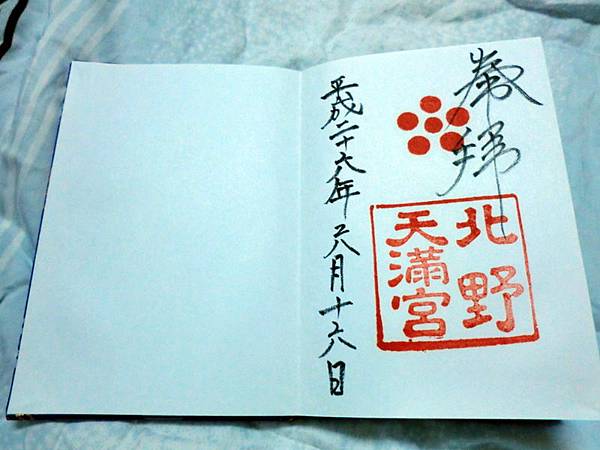 奉拝
北野
天満宮
平成二十六年六月十六日